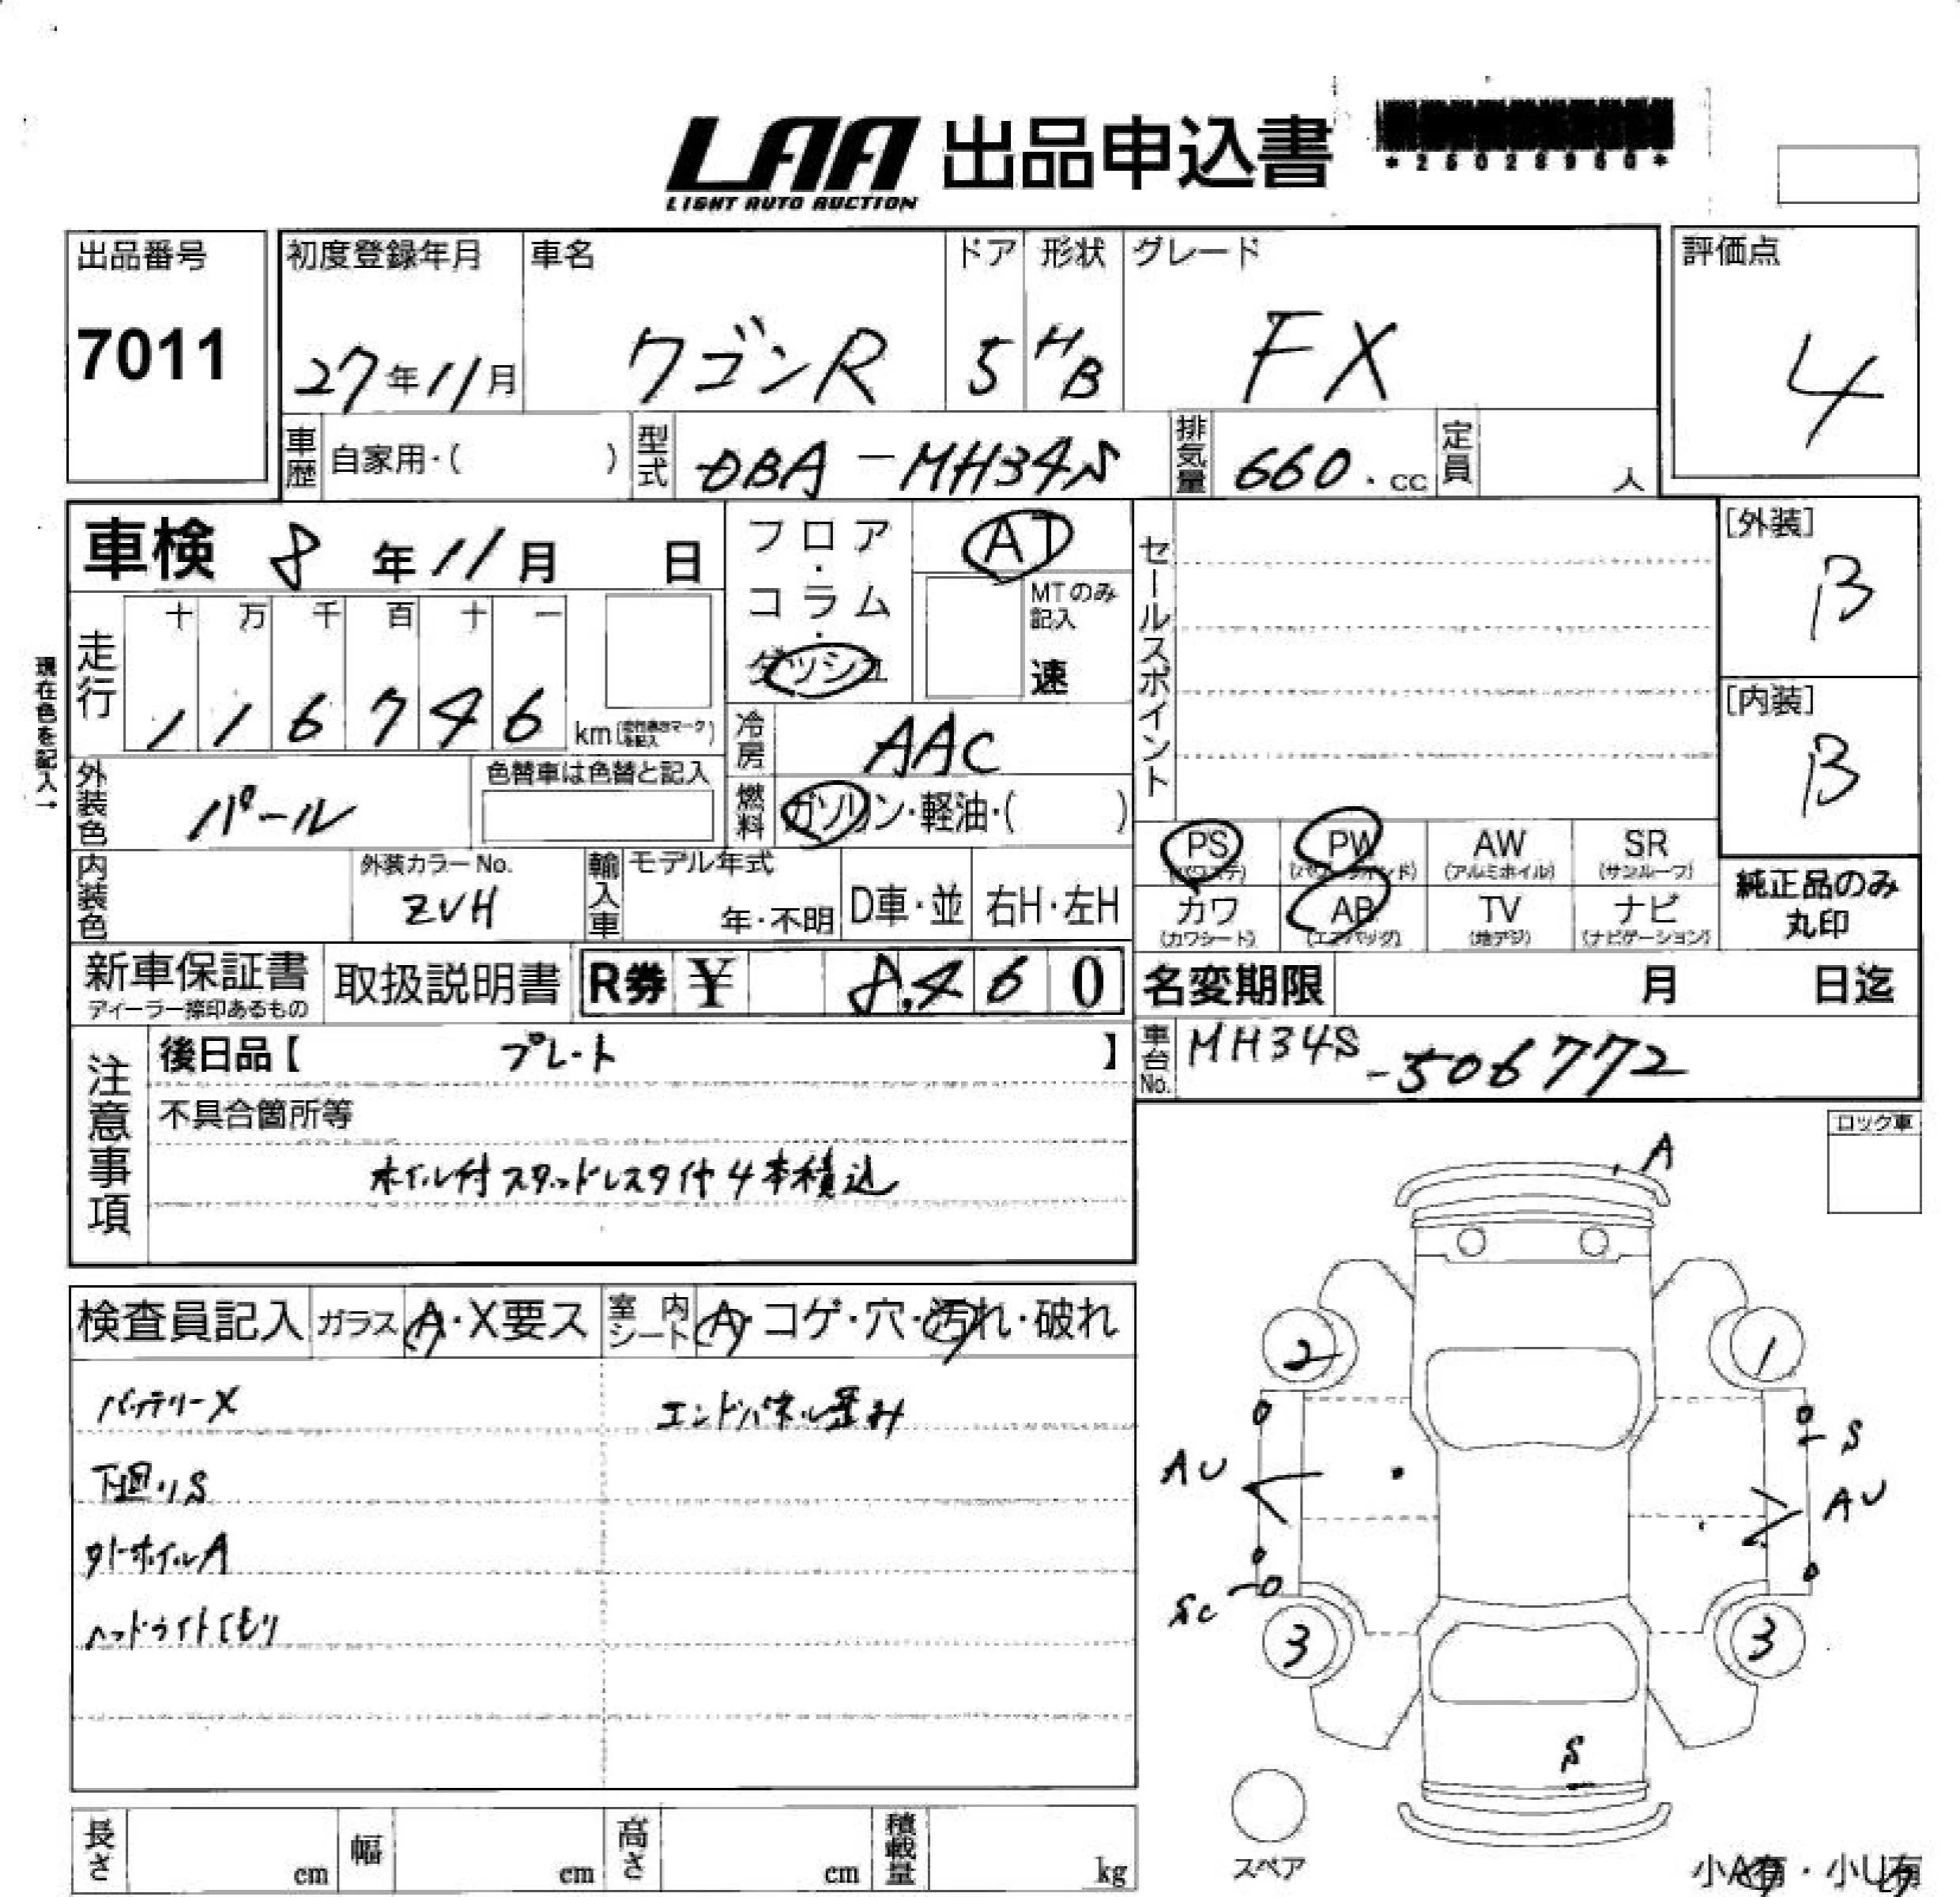 LAA 出品申込書
LIGHT AUTO AUCTION
出品番号
7011
初度登録年月
27年11月
車名
ワゴンR
ドア
5
形状
HB
グレード
FX
評価点
4
車歴 自家用・( )
型式 DBA-MH34S
排気量 660.cc
定員 人
車検 8年11月 日
フロア・コラム・ダッシュ
AT
MTのみ記入
速
セールスポイント
[外装]
B
[内装]
B
現在色を記入→
走行
十 万 千 百 十 一
1 1 6 7 4 6 km
冷房 AAC
外装色 パール
色替車は色替と記入
燃料 ガソリン・軽油・( )
PS (パワステ)
PW
AW (アルミホイル)
SR (サンルーフ)
カワ (カワシート)
AB (エアバッグ)
TV (地デジ)
ナビ (ナビゲーション)
純正品のみ
丸印
内装色
外装カラーNo.
ZVH
輸入車
モデル年式
年・不明
D車・並
右H・左H
新車保証書
ディーラー捺印あるもの
取扱説明書
R券 ¥ 8,460
名変期限 月 日迄
注意事項
後日品【 プレート 】
車台No. MH34S-506772
不具合箇所等
ホイル付スタッドレスタイヤ4本積込
ロック車
検査員記入
ガラス A・X要ス
室内シート A・コゲ・穴・汚れ・破れ
バッテリーX
エンドパネル歪み
下廻りS
タイヤホイルA
ヘッドライトくもり
A
2
1
S
AU
AU
Sc
3
3
S
スペア
長さ cm
幅 cm
高さ cm
積載量 kg
小A有・小U有